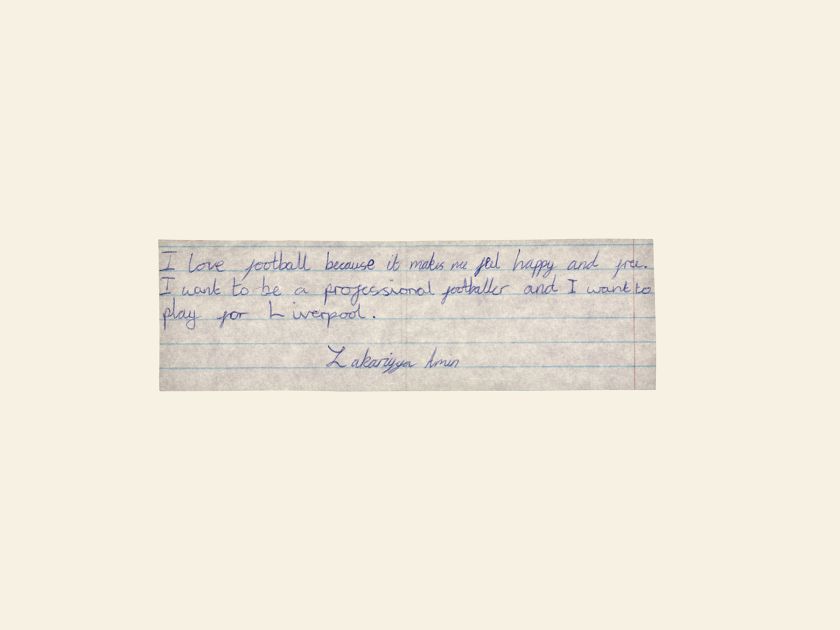 I love football because it makes me feel happy and free.
I want to be a professional footballer and I want to
play for Liverpool.
Zakariyya Amin